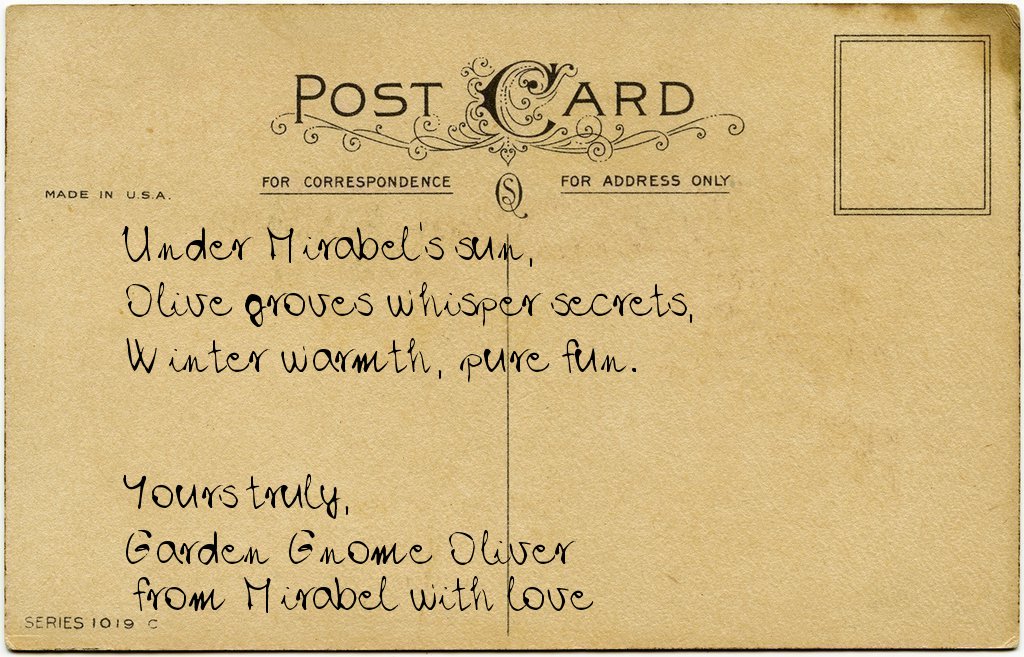 POST CARD
FOR CORRESPONDENCE
FOR ADDRESS ONLY
MADE IN U.S.A.
Under Mirabel's sun,
Olive groves whisper secrets,
Winter warmth, pure fun.
Yours truly,
Garden Gnome Oliver
from Mirabel with love
SERIES 1019 C